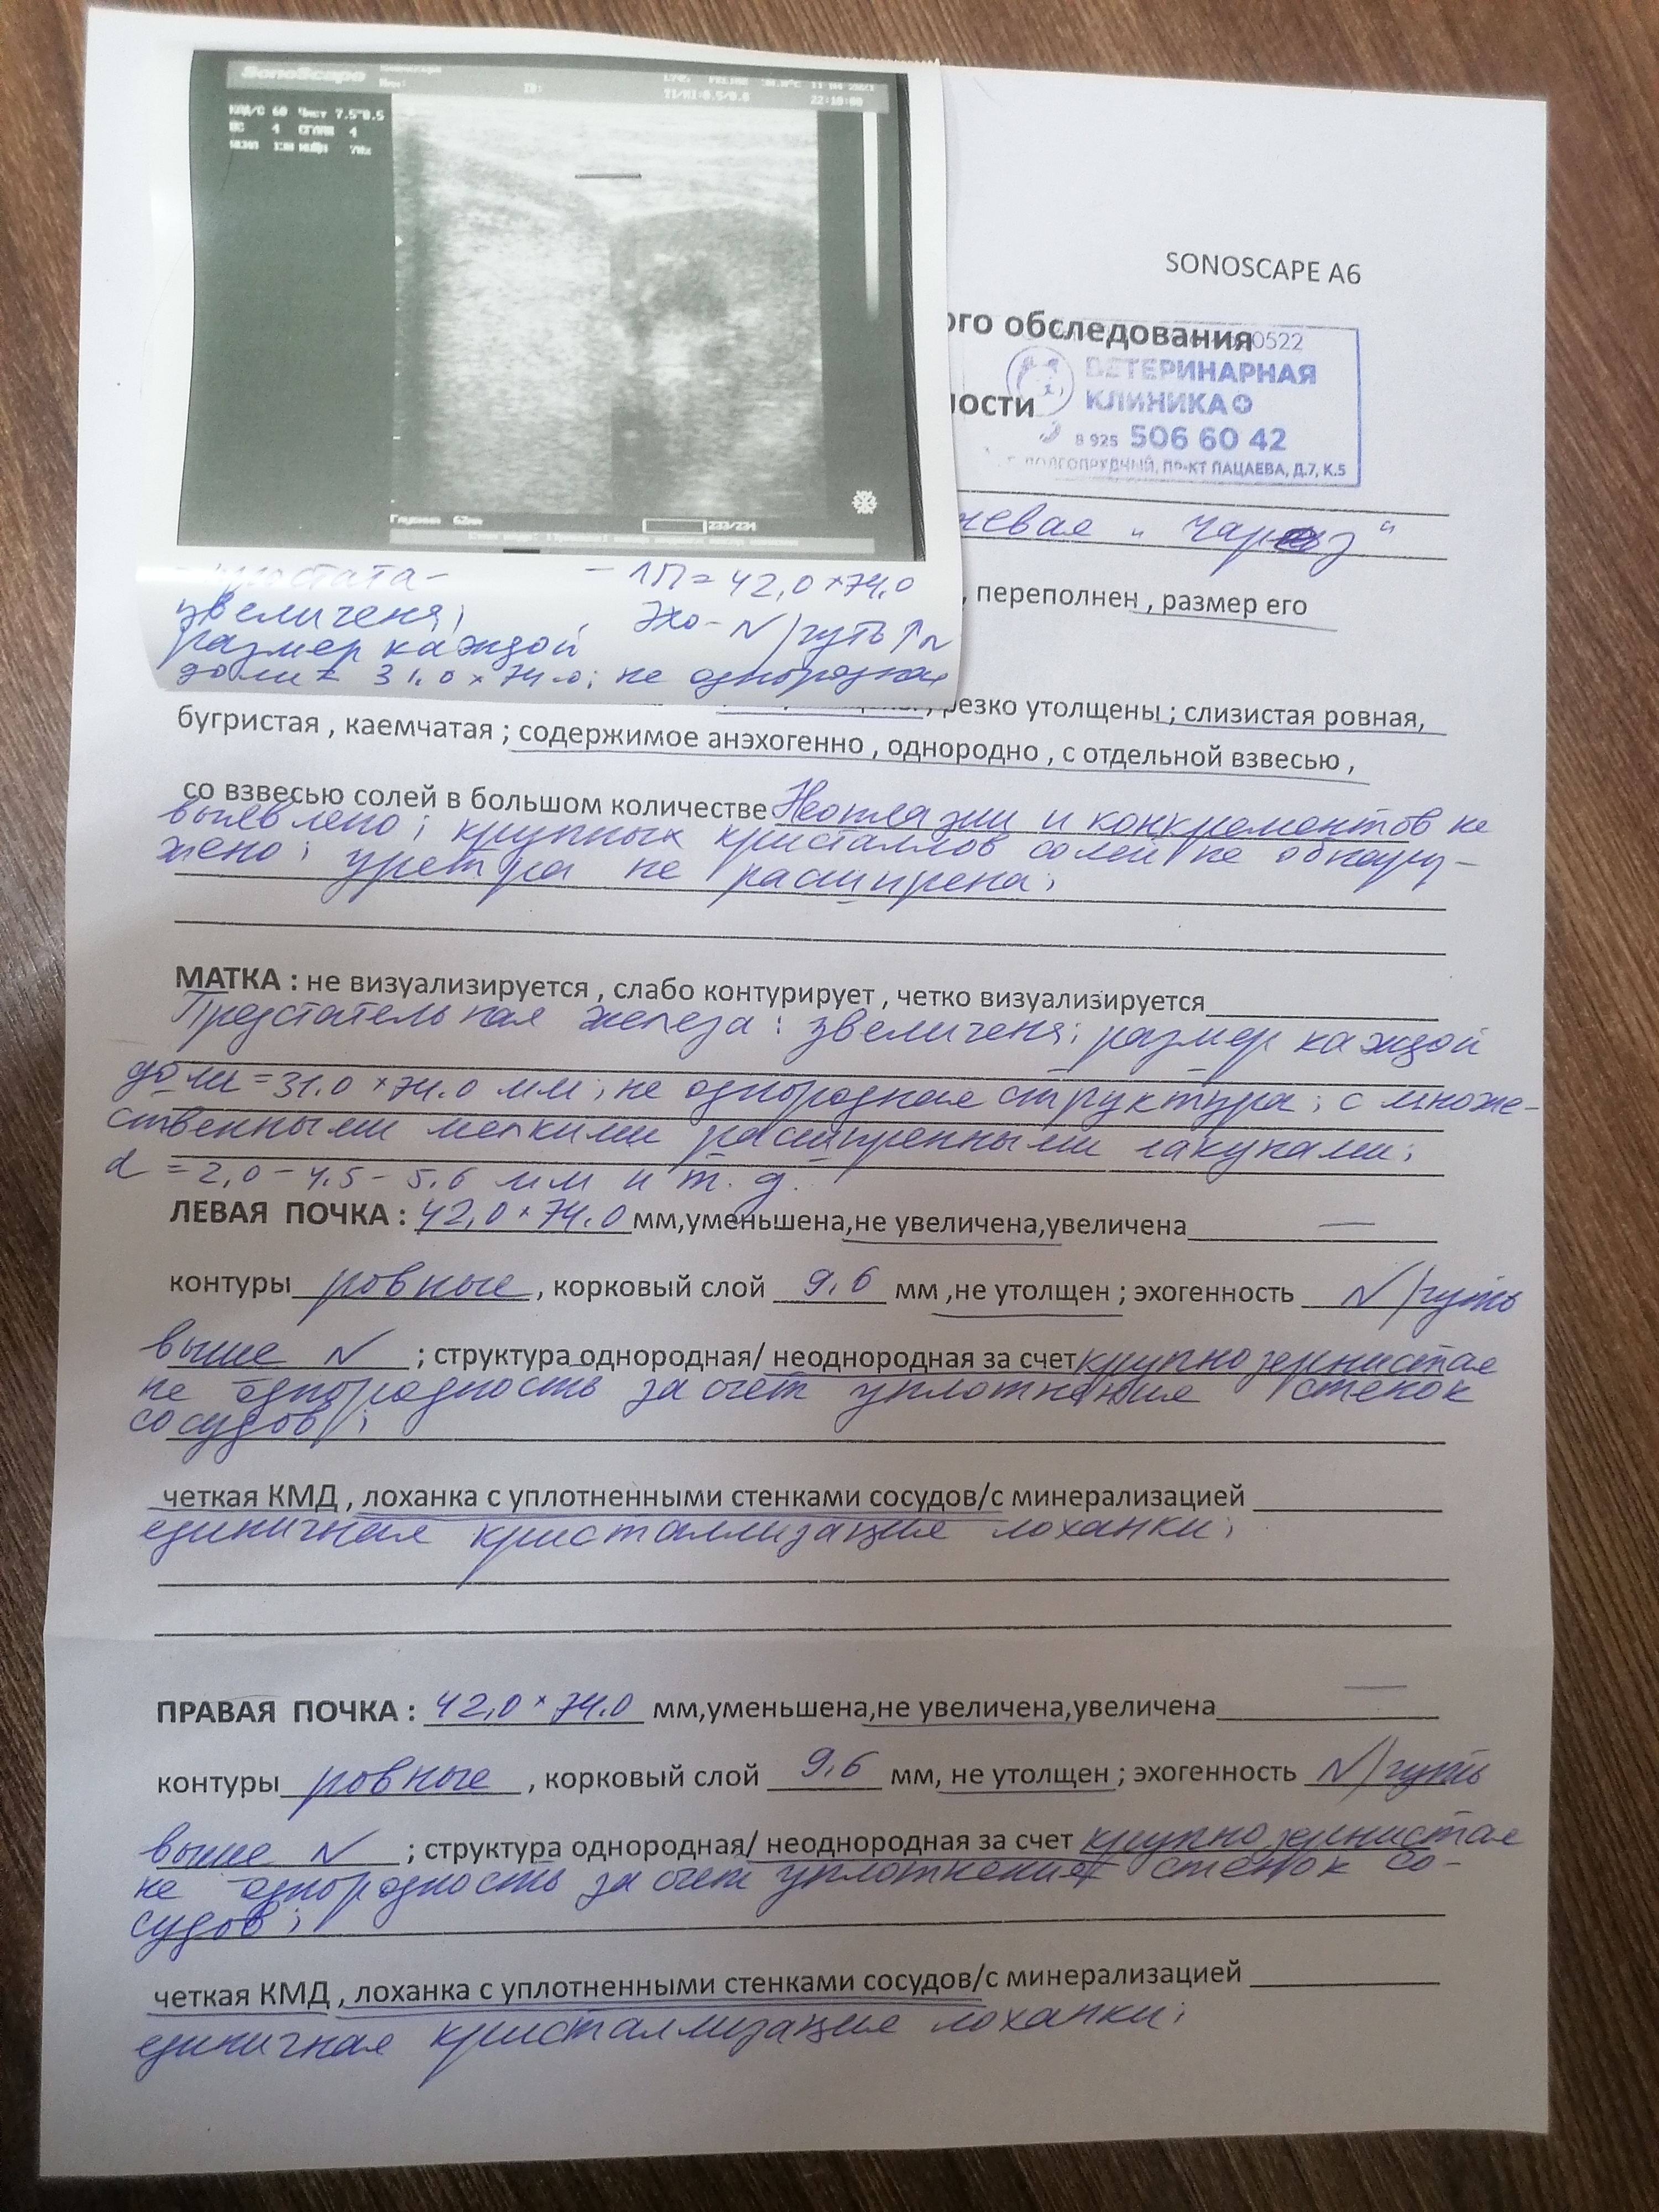 SonoScape
22:10:00
7.5
SONOSCAPE A6
ого обследования
0522
ВЕТЕРИНАРНАЯ
ности
КЛИНИКА
8 925 506 60 42
Г. ДОЛГОПРУДНЫЙ, ПР-КТ ПАЦАЕВА, Д.7, К.5
233/234
невая „
простата –
увеличена;
размер каждой
доли = 31.0 × 74.0; не однородная
– ЛП = 42,0 × 74.0
Эхо – N/чуть ↑ N
, переполнен , размер его
, резко утолщены ; слизистая ровная,
бугристая , каемчатая ; содержимое анэхогенно , однородно , с отдельной взвесью ,
со взвесью солей в большом количестве Неоплазии и конкрементов не
выявлено; крупных кристаллов солей не обнару-
жено; уретра не расширена;
МАТКА : не визуализируется , слабо контурирует , четко визуализируется
Предстательная железа: увеличена; размер каждой
доли = 31.0 × 74.0 мм; не однородная структура; с множе-
ственными мелкими расширенными лакунами;
d = 2,0 – 4.5 – 5.6 мм и т. д.
ЛЕВАЯ ПОЧКА : 42,0 × 74.0 мм,уменьшена,не увеличена,увеличена —
контуры ровные , корковый слой 9,6 мм ,не утолщен ; эхогенность N/чуть
выше N ; структура однородная/ неоднородная за счет крупно зернистая
не однородность за счет уплотнения стенок
сосудов;
четкая КМД , лоханка с уплотненными стенками сосудов/с минерализацией
единичная кристаллизация лоханки;
ПРАВАЯ ПОЧКА : 42,0 × 74.0 мм,уменьшена,не увеличена,увеличена —
контуры ровные , корковый слой 9,6 мм, не утолщен ; эхогенность N/чуть
выше N ; структура однородная/ неоднородная за счет крупно зернистая
не однородность за счет уплотнения стенок со-
судов;
четкая КМД , лоханка с уплотненными стенками сосудов/с минерализацией
единичная кристаллизация лоханки;